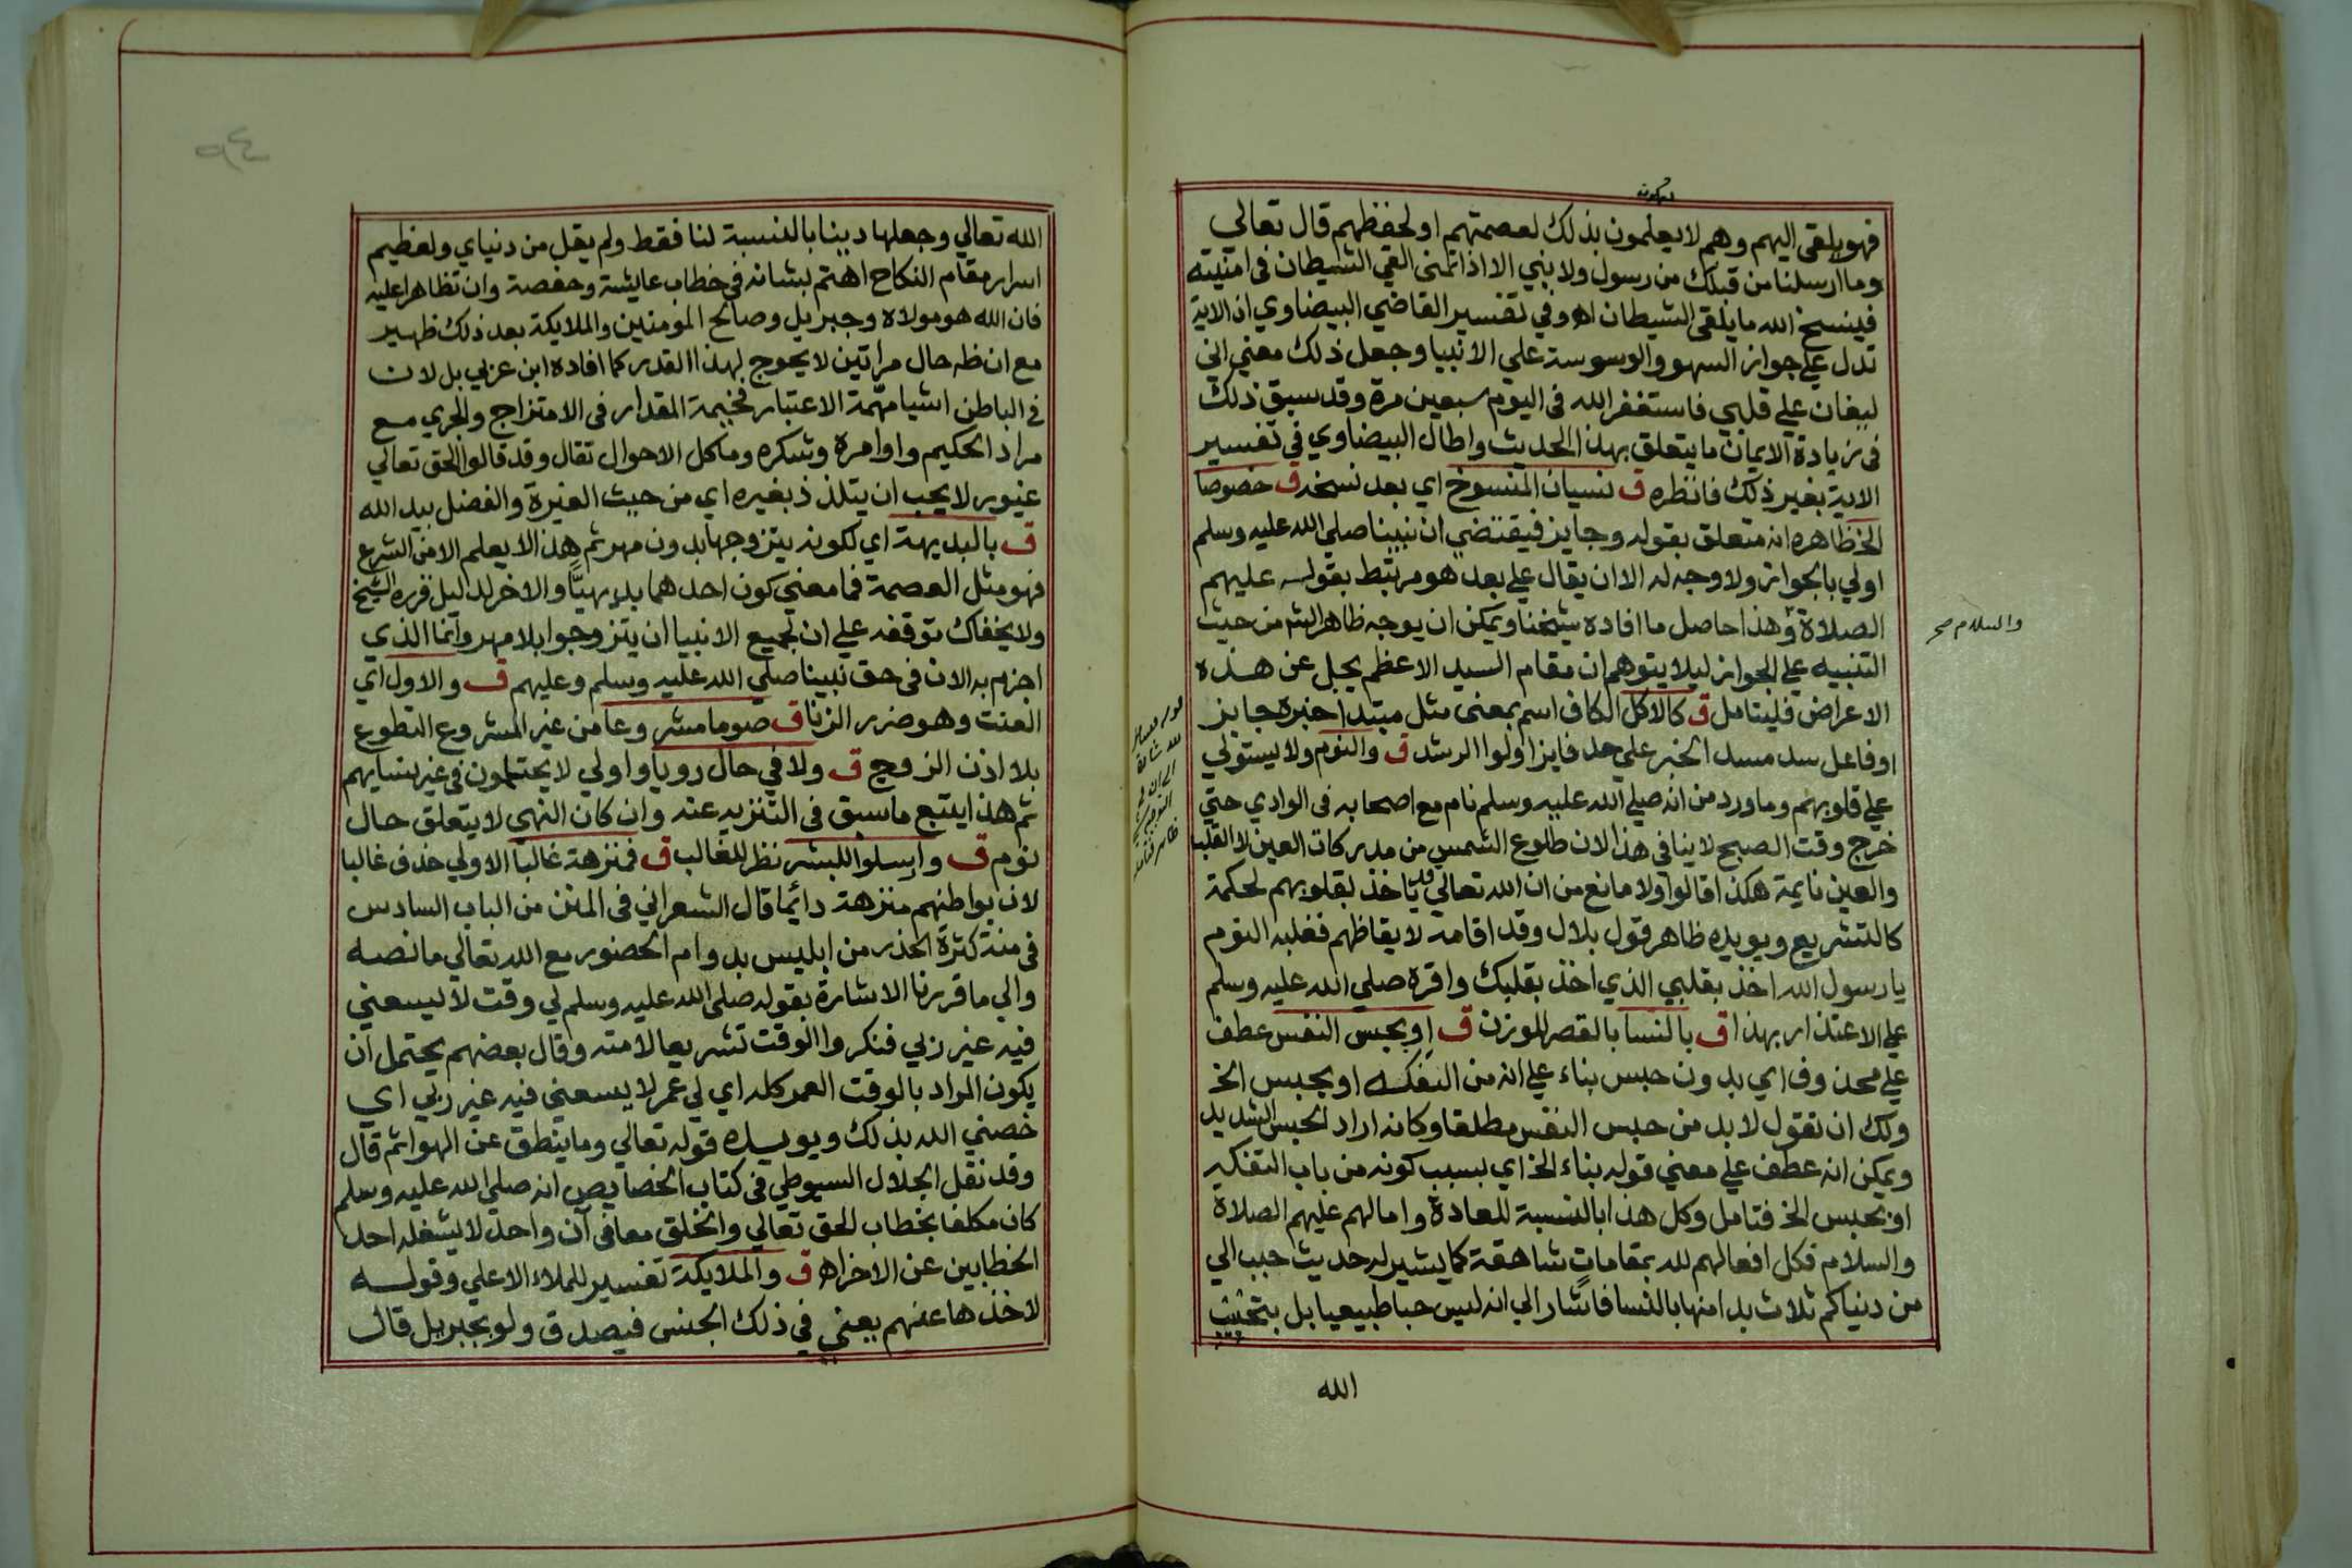 فهو يلقى اليهم وهم لا يعلمون بذلك لعصمتهم او لحفظهم قال تعالى
وما ارسلنا من قبلك من رسول ولا بني الا اذا تمنى القي الشيطان في امنيته
فينسخ الله ما يلقي الشيطان اه وفي تفسير القاضي البيضاوي ان الاية
تدل علي جواز السهو والوسوسة علي الانبيا وجعل ذلك معني اني
ليغان علي قلبي فاستغفر الله في اليوم سبعين مرة وقد سبق ذلك
في زيادة الايمان ما يتعلق بهذا الحديث واطال البيضاوي في تفسير
الاية بغير ذلك فانظره ق نسيان المنسوخ اي بعد نسخه ق خصوصا
الخ ظاهره انه متعلق بقوله وجايز فيقتضي ان نبينا صلي الله عليه وسلم
اولي بالجواز ولا وجه له الا ان يقال علي بعد هو مرتبط بقوله عليهم
الصلاة وهذا حاصل ما افاده شيخنا ويمكن ان يوجه ظاهر الشه من حيث
والسلام صح
التنبيه علي الجواز ليلا يتوهم ان مقام السيد الاعظم يجل عن هذه
الاعراض فليتامل ق كالاكل الكاف اسم بمعنى مثل مبتدا خبره جايز
او فاعل سد مسد الخبر علي حد فايز اولوا الرشد ق والنوم ولا يستولي
علي قلوبهم وما ورد من انه صلي الله عليه وسلم نام مع اصحابه في الوادي حتي
خرج وقت الصبح لا ينافي هذا لان طلوع الشمس من مدركات العين لا القلب
والعين نايمة هكذا قالوا ولا مانع من ان الله تعالي قد ياخذ بقلوبهم لحكمة
كالتشريع ويويده ظاهر قول بلال وقد اقامه لايقاظهم فغلبه النوم
يا رسول الله اخذ بقلبي الذي اخذ بقلبك واقره صلي الله عليه وسلم
علي الاعتذار بهذا ق بالنسا بالقصر للوزن ق او بحبس النفس عطف
علي محذوف اي بدون حبس بناء علي انه من التفكه او بحبس الخ
ولك ان تقول لا بد من حبس النفس مطلقا وكانه اراد الحبس الشديد
ويمكن انه عطف علي معني قوله بناء الخ اي بسبب كونه من باب التفكه
او بحبس الخ فتامل وكل هذا بالنسبة للعادة واما لهم عليهم الصلاة
والسلام فكل افعالهم لله بمقامات شاهقة كما يشير له حديث حبب الي
من دنياكم ثلاث بدا منها بالنسا فاشار الي انه ليس حبا طبيعيا بل بتحبيب
الله
الله تعالي وجعلها دينا بالنسبة لنا فقط ولم يقل من دنياي ولعظيم
اسرار مقام النكاح اهتم بشانه في خطاب عايشة وحفصة وان تظاهرا عليه
فان الله هو مولاه وجبريل وصالح المومنين والملايكة بعد ذلك ظهير
مع ان ظه حال مراتين لا يحوج لهذا القدر كما افاده ابن عربي بل لان
في الباطن اشيا مهمة الاعتبار فخيمة المقدار في الامتزاج والجري مع
مراد الحكيم واوامره وشكره وما كل الاحوال تقال وقد قالوا الحق تعالي
غيور لا يحب ان يتلذذ بغيره اي من حيث الغيرة والفضل بيد الله
ق بالبديهة اي لكونه يتزوجها بدون مهر ثم هذا لا يعلم الا من الشرع
فهو مثل العصمة فما معني كون احدهما بديهيا والاخر لدليل قرره الشيخ
ولا يخفاك توقفه علي ان لجميع الانبيا ان يتزوجوا بلا مهر وانما الذي
اجزم به الان في حق نبينا صلي الله عليه وسلم وعليهم ق والاول اي
العنت وهو ضرر الزنا ق صوما مشروعا من غير المشروع التطوع
بلا اذن الزوج ق ولا في حال رويا واولي لا يحتلمون في غير نسايهم
ثم هذا يتبع ما سبق في التنزيه عنه وان كان النهي لا يتعلق حال
نوم ق وارسلوا للبشر نظر للغالب ق فمنزهة غالبا الاولي حذف غالبا
لان بواطنهم منزهة دائما قال الشعراني في المنن من الباب السادس
في منة كثرة الحذر من ابليس بدوام الحضور مع الله تعالي ما نصه
والي ما قررنا الاشارة بقوله صلي الله عليه وسلم لي وقت لا يسعني
فيه غير ربي فنكروا الوقت تشريعا لامته وقال بعضهم يحتمل ان
يكون المراد بالوقت العمر كله اي لي عمر لا يسعني فيه غير ربي اي
خصني الله بذلك ويويده قوله تعالي وما ينطق عن الهوا ثم قال
وقد نقل الجلال السيوطي في كتاب الخصايص انه صلي الله عليه وسلم
كان مكلفا بخطاب الحق تعالي والخلق معا في آن واحد لا يشغله احد
الخطابين عن الاخر اه ق والملايكة تفسير للملاء الاعلي وقوله
لاخذها عنهم يعني في ذلك الجنس فيصدق ولو بجبريل قال